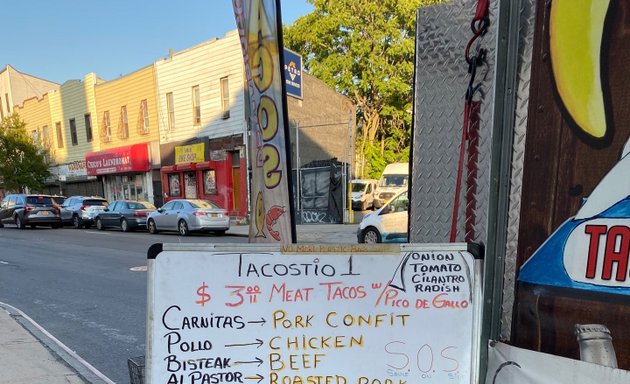 TACOSTIO 1
ONION
TOMATO
CILANTRO
RADISH
$3.00 MEAT TACOS W/ PICO DE GALLO
CARNITAS → PORK CONFIT
POLLO → CHICKEN
BISTEAK → BEEF
AL PASTOR → ROASTED PORK
S.O.S
ACOS
TA
LAUNDROMAT